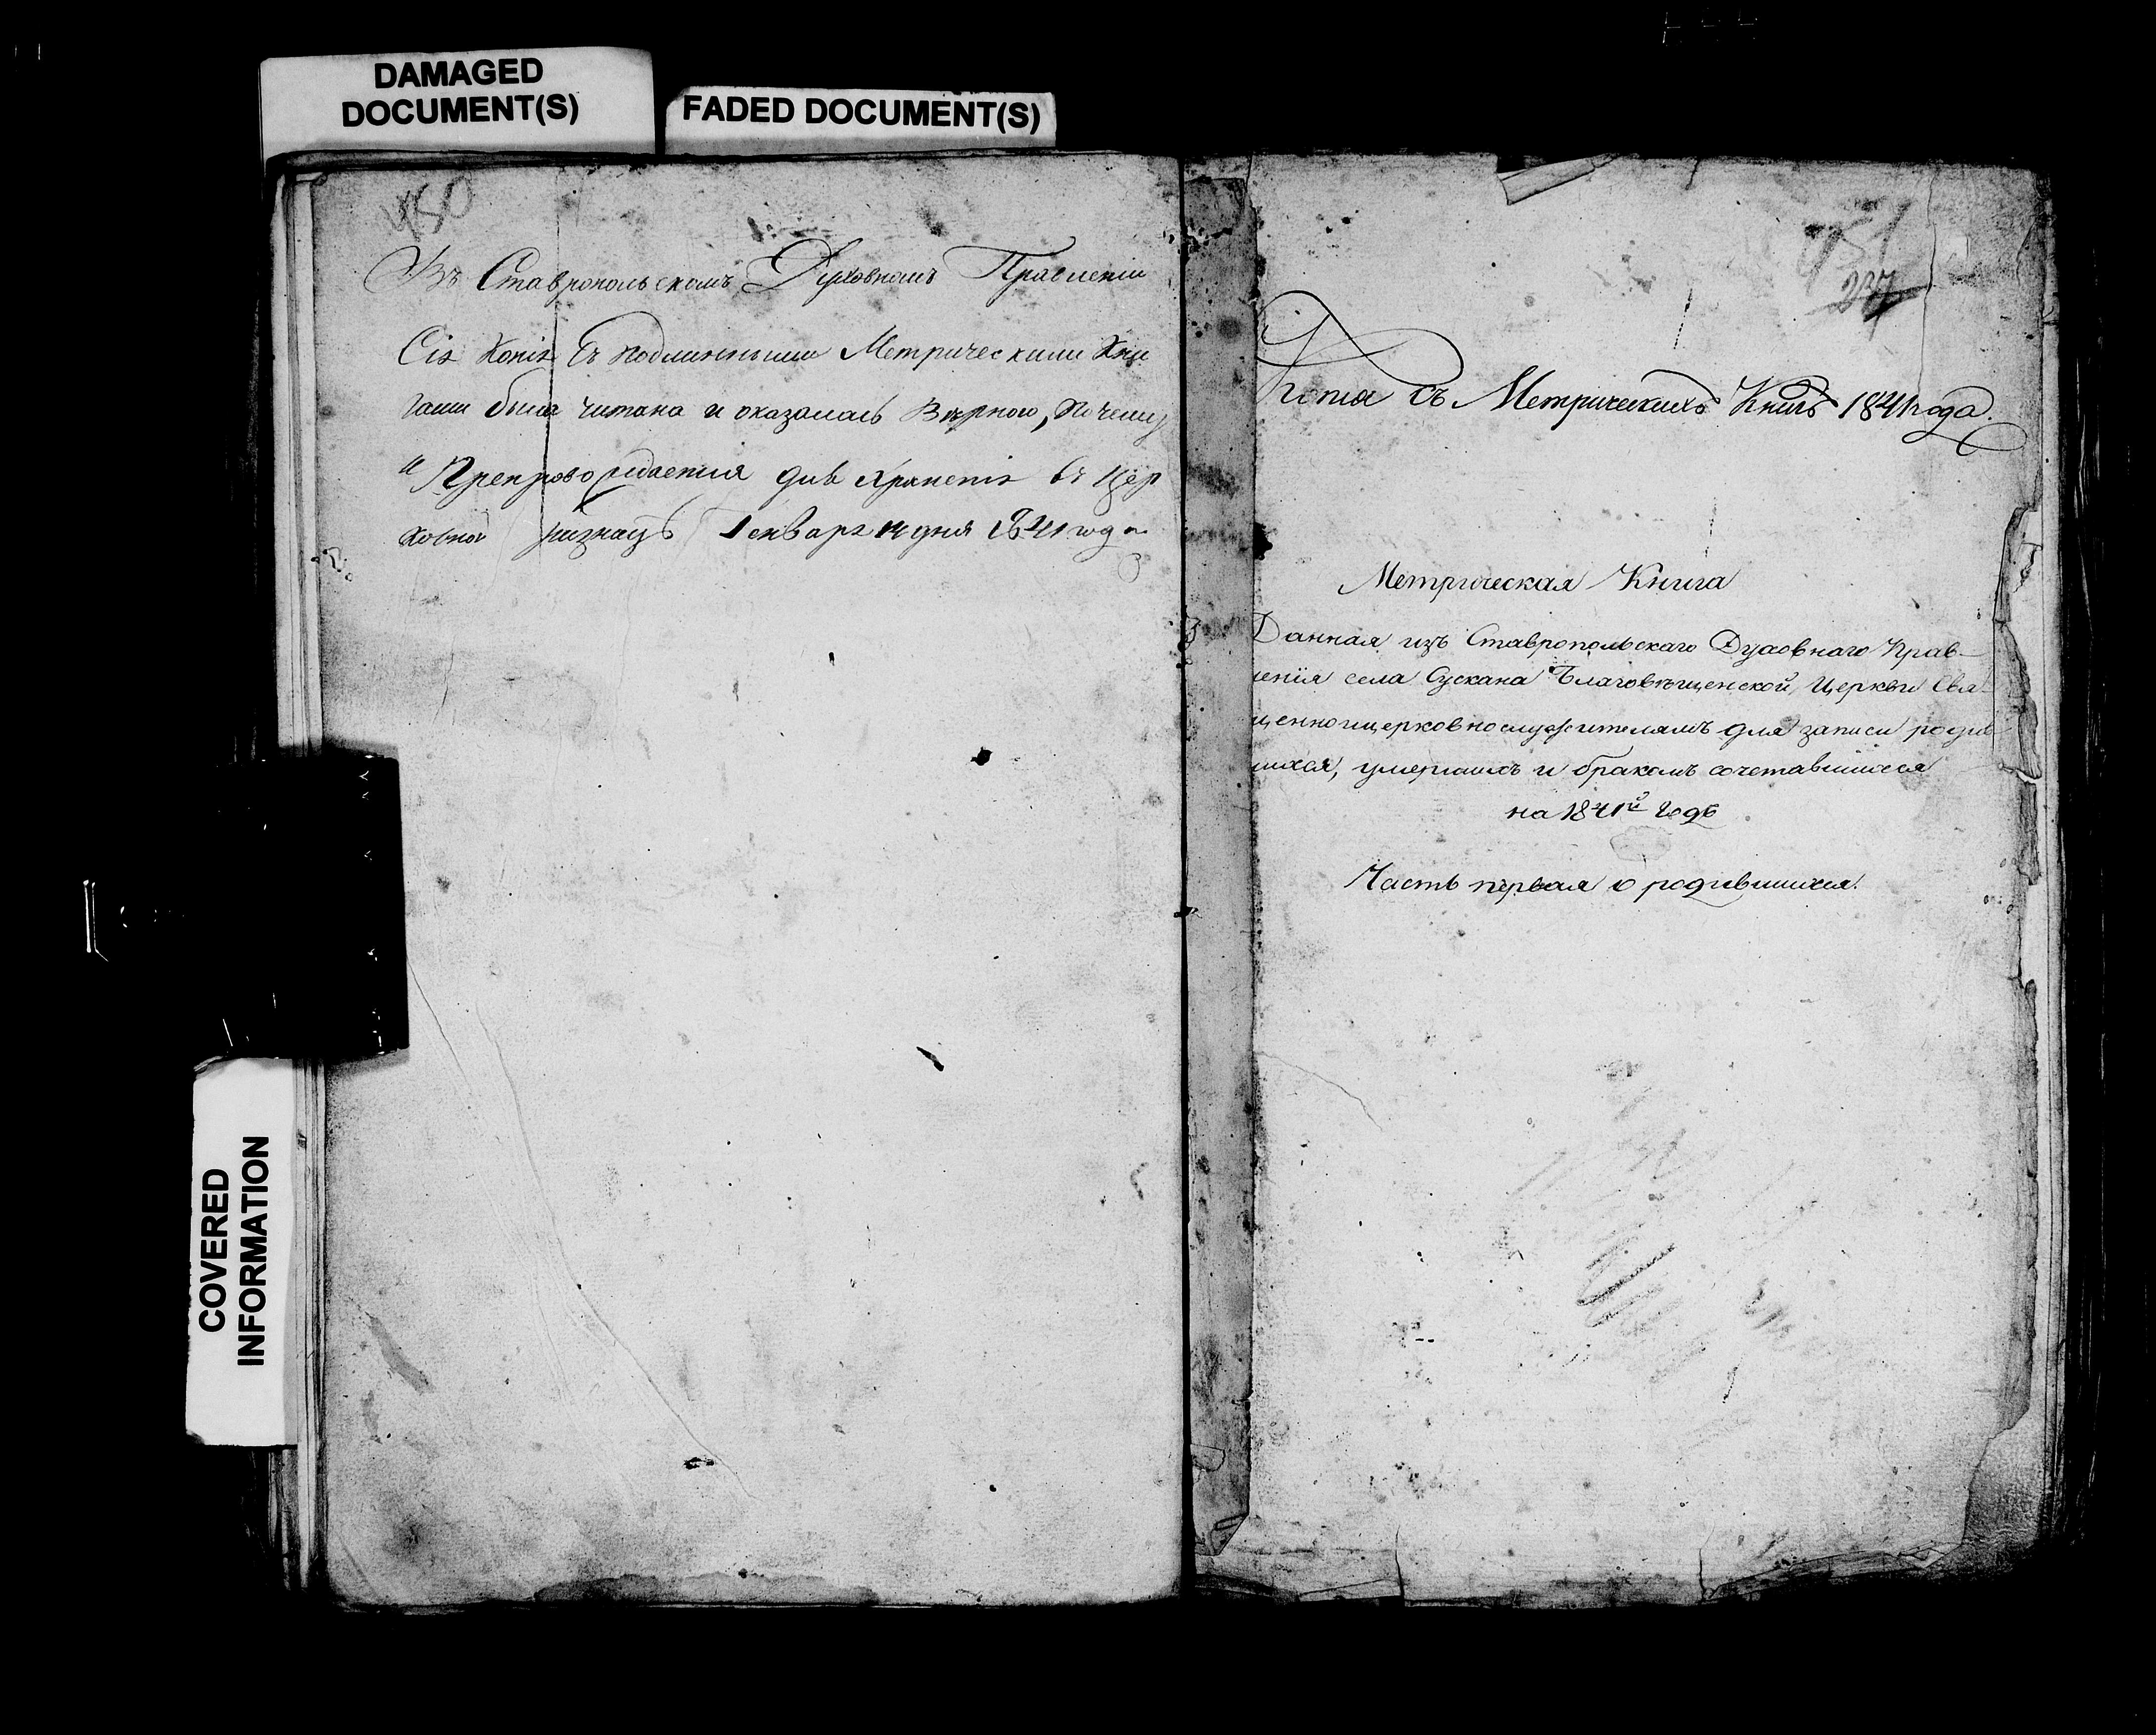 DAMAGED
DOCUMENT(S)
FADED DOCUMENT(S)
450
Въ Ставропольскомъ Духовномъ Правленіи
Сія Копія Съ подлинными Метрическими Кни
гами была читана и оказалась Вѣрною, Почему
и Препровождается для Храненія въ Цер
ковной Генваря 14 дня 1841 года
COVERED
INFORMATION
451
237
Копія съ Метрическихъ Книгъ 1841 года.
Метрическая Книга
Данная изъ Ставропольскаго Духовнаго Прав-
ленія села Сускана Благовѣщенской Церкви Свя-
щенноицерковнослужителямъ для записи родив
шихся, умершихъ и бракомъ сочетавшихся
на 1841й Годъ
Часть первая о родившихся.